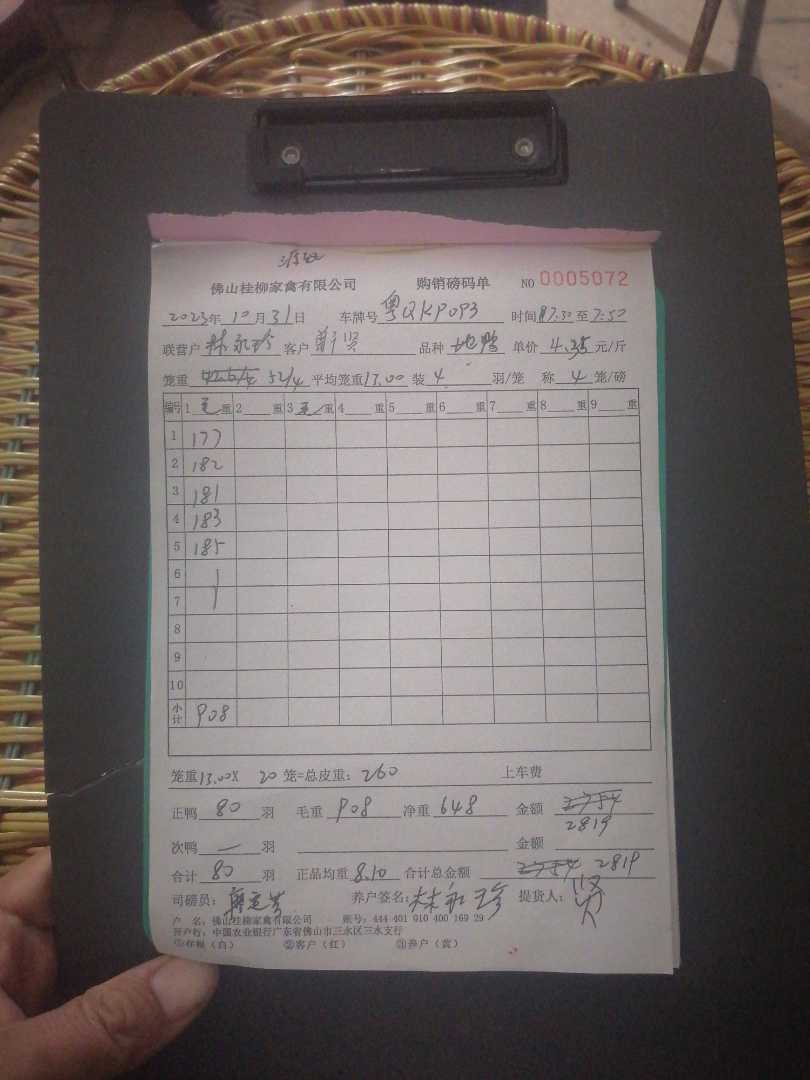 佛山桂柳家禽有限公司 购销磅码单 NO 0005072
2023年10月31日 车牌号 粤QKP0P3 时间 17:30至7:50
联营户 林永珍 客户 贤 品种 地鸭 单价 4.35 元/斤
笼重 52/4 平均笼重 13.00 装 4 羽/笼 称 4 笼/磅
编号 1 毛 重 2 重 3 毛 重 4 重 5 重 6 重 7 重 8 重 9 重
1 177
2 182
3 181
4 183
5 185
6
7
8
9
10
小计 908
笼重 13.00X 20 笼=总皮重: 260 上车费
正鸭 80 羽 毛重 908 净重 648 金额 2754
2819
次鸭 — 羽 金额
合计 80 羽 正品均重 8.10 合计总金额 2754 2819
司磅员: 养户签名: 林永珍 提货人: 贤
户 名: 佛山桂柳家禽有限公司 账号: 444 401 910 400 169 29
开户行: 中国农业银行广东省佛山市三水区三水支行
①存根(白) ②客户(红) ③养户(黄)